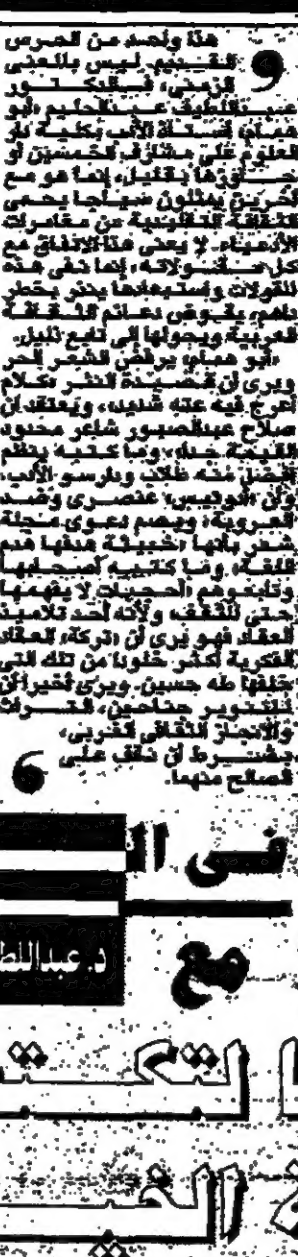 هذا واحد من الحرس
القديم، ليس بالمعنى
الزمنى، فالدكتور
عبداللطيف عبدالحليم «أبو
همام» أستاذ الأدب بكلية دار
العلوم على مشارف الخمسين أو
جاوزها بقليل، إنما هو مع
آخرين يمثلون سياجا يحمى
الثقافة التقليدية من مغامرات
الأدعياء. لا يعنى هذا الاتفاق مع
كل مقولاته، إنما نفى هذه
المقولات واستبعادها ينذر بخطر
داهم، يقوض دعائم الثقافة
العربية ويحولها إلى تابع ذليل.
«أبو همام» يرفض الشعر الحر
ويرى أن قصيدة النثر «كلام
أعرج فيه عته شديد»، ويعتقد أن
صلاح عبدالصبور شاعر محدود
القيمة جدا، «وما كتبه ينظم
أفضل منه طلاب ودارسو الأدب،
وأن «أدونيس» عنصرى وضد
العروبة، ويصم دعوى مجلة
شعر بأنها «خبيثة هدفها هدم
اللغة، وما كتبه أصحابها
وتابعوهم «أحجيات لا يفهمها
حتى المثقف» ولأنه أحد تلاميذ
العقاد فهو يرى أن «تركة» العقاد
الفكرية أكثر خلودا من تلك التى
خلفها طه حسين. ويرى أخيرا أن
للتنوير جناحين، التراث
والإنجاز الثقافى الغربى،
بشرط أن نقف على
الصالح منهما.
فى ال
مع
د. عبداللط